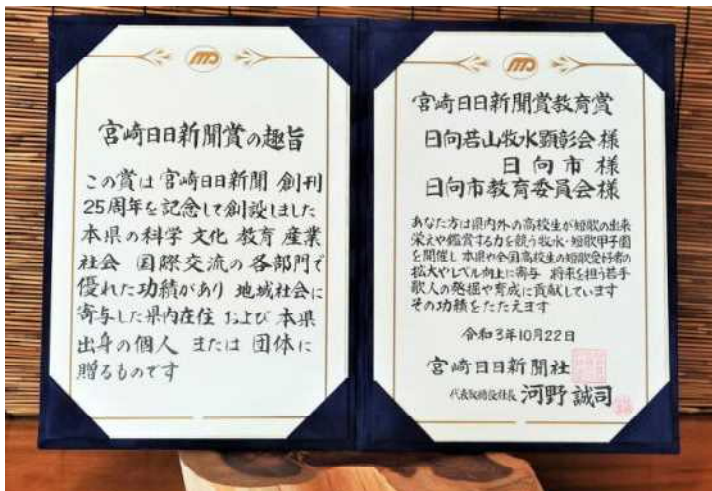 宮崎日日新聞賞の趣旨
この賞は宮崎日日新聞 創刊
25周年を記念して創設しました
本県の科学 文化 教育 産業
社会 国際交流の各部門で
優れた功績があり 地域社会に
寄与した県内在住 および 本県
出身の個人 または 団体に
贈るものです
宮崎日日新聞賞教育賞
日向若山牧水顕彰会様
日向市様
日向市教育委員会様
あなた方は県内外の高校生が短歌の出来
栄えや鑑賞する力を競う牧水・短歌甲子園
を開催し 本県や全国高校生の短歌愛好者の
拡大やレベル向上に寄与 将来を担う若手
歌人の発掘や育成に貢献しています
その功績をたたえます
令和3年10月22日
宮崎日日新聞社
代表取締役社長 河野誠司